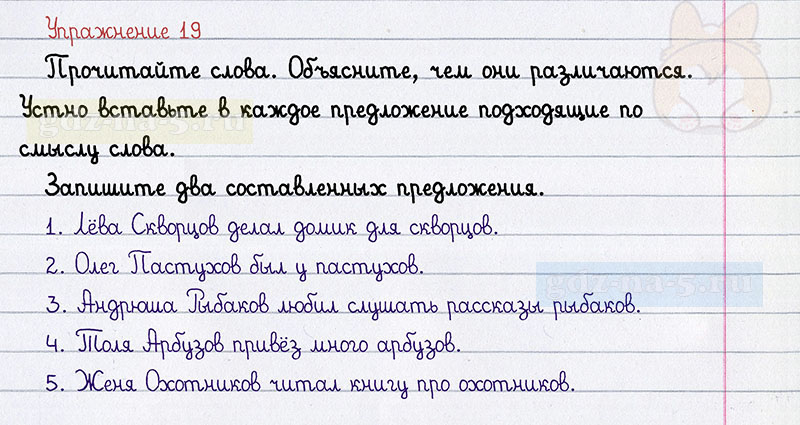 Упражнение 19
Прочитайте слова. Объясните, чем они различаются.
Устно вставьте в каждое предложение подходящие по
смыслу слова.
Запишите два составленных предложения.
1. Лёва Скворцов делал домик для скворцов.
2. Олег Пастухов был у пастухов.
gdz-na-5.ru
3. Андрюша Рыбаков любил слушать рассказы рыбаков.
4. Толя Арбузов привёз много арбузов.
5. Женя Охотников читал книгу про охотников.